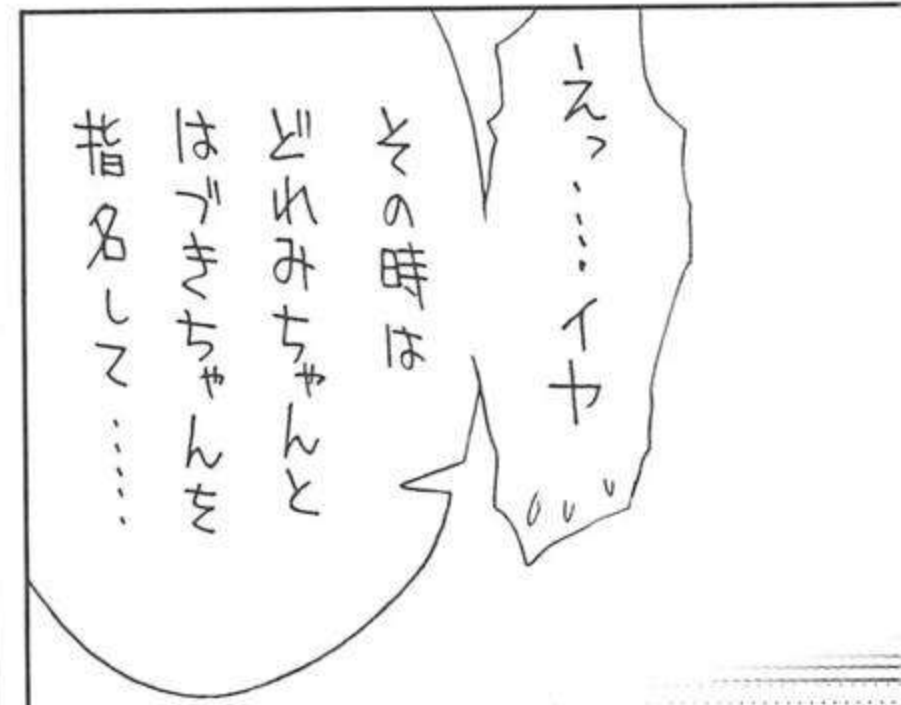 えっ……イヤ
その時は
どれみちゃんと
はづきちゃんを
指名して……